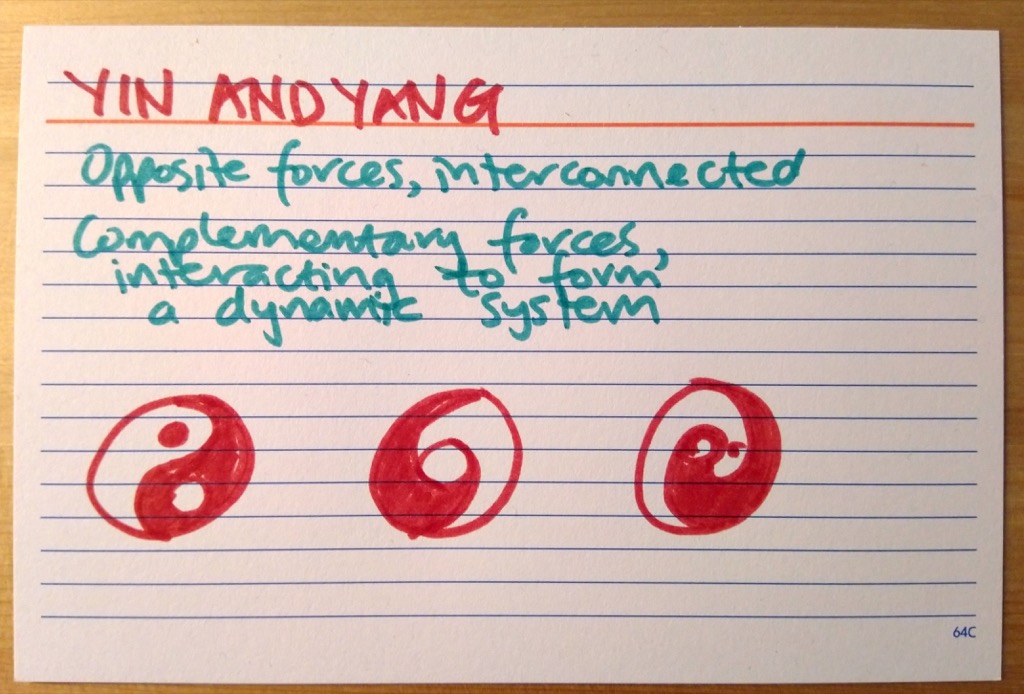 YIN AND YANG
Opposite forces, interconnected
Complementary forces,
interacting to form
a dynamic system
64C